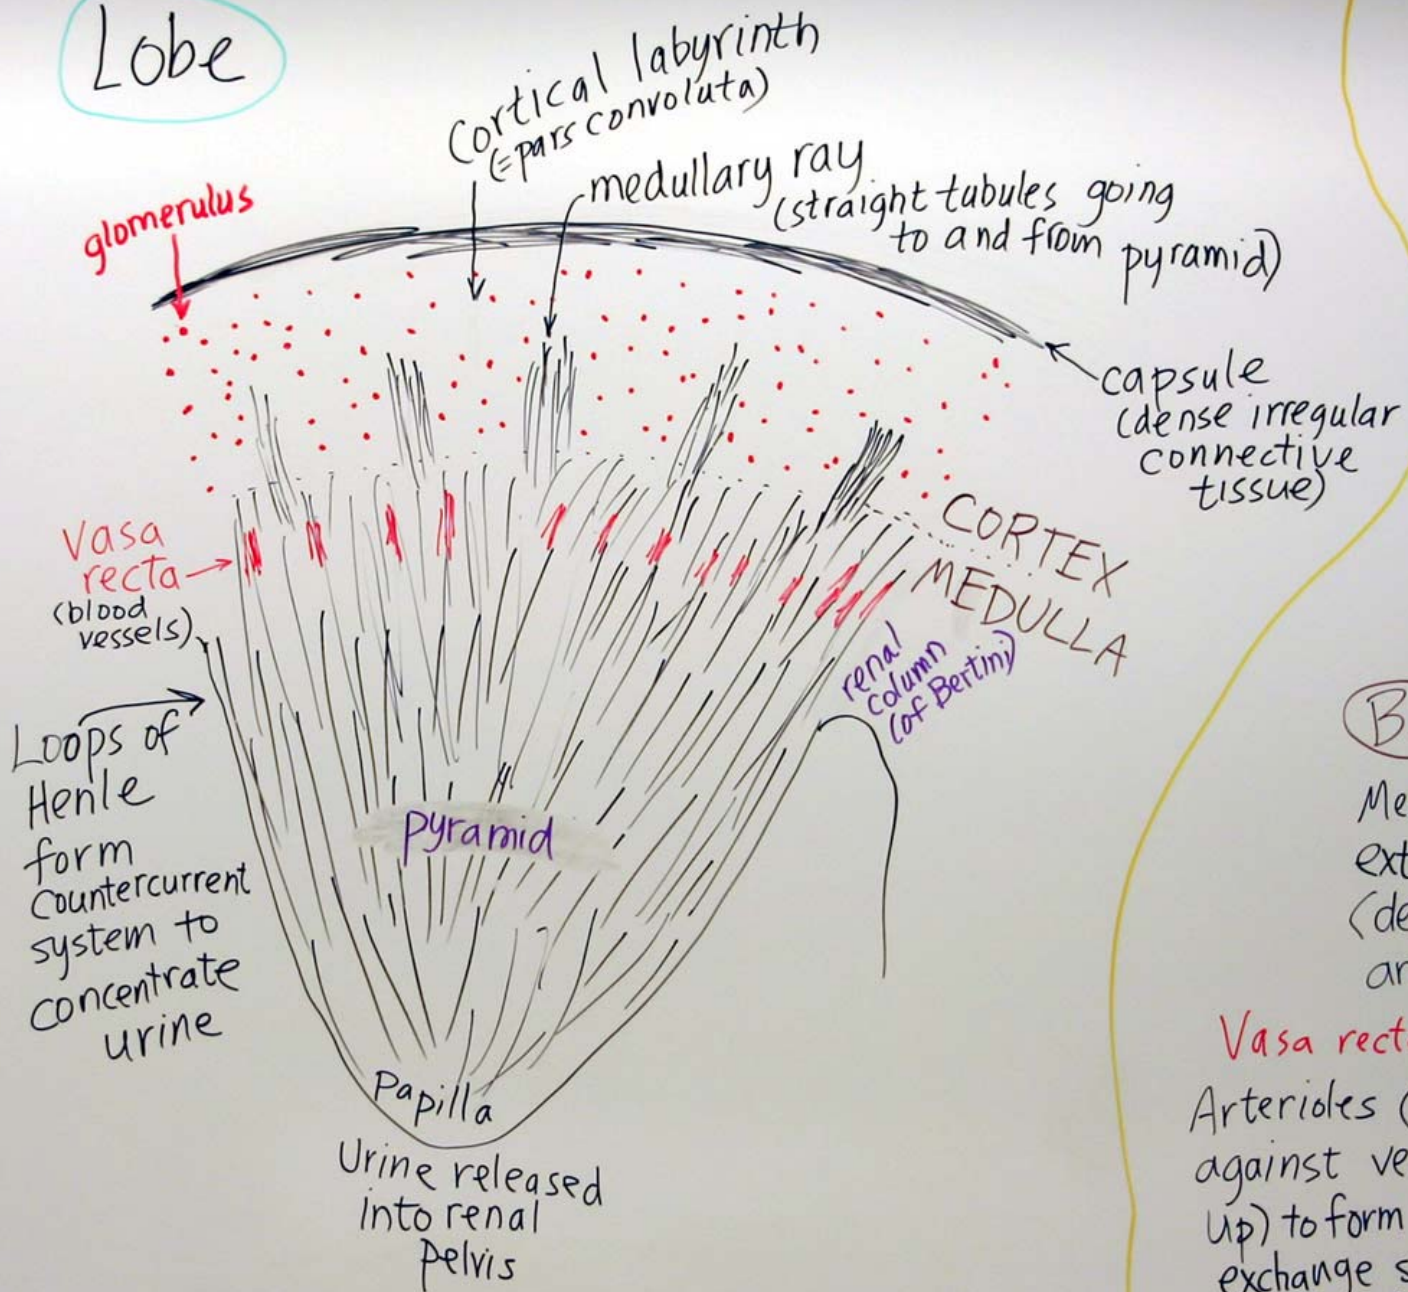 Lobe
Cortical labyrinth
(=pars convoluta)
medullary ray
(straight tubules going
to and from pyramid)
glomerulus
capsule
(dense irregular
connective
tissue)
CORTEX
MEDULLA
Vasa
recta
(blood
vessels)
renal
column
(of Bertini)
Loops of
Henle
form
countercurrent
system to
concentrate
urine
pyramid
Papilla
Urine released
into renal
pelvis
B
Me
ext
(de
ar
Vasa rect
Arterioles (
against ve
up) to form
exchange s